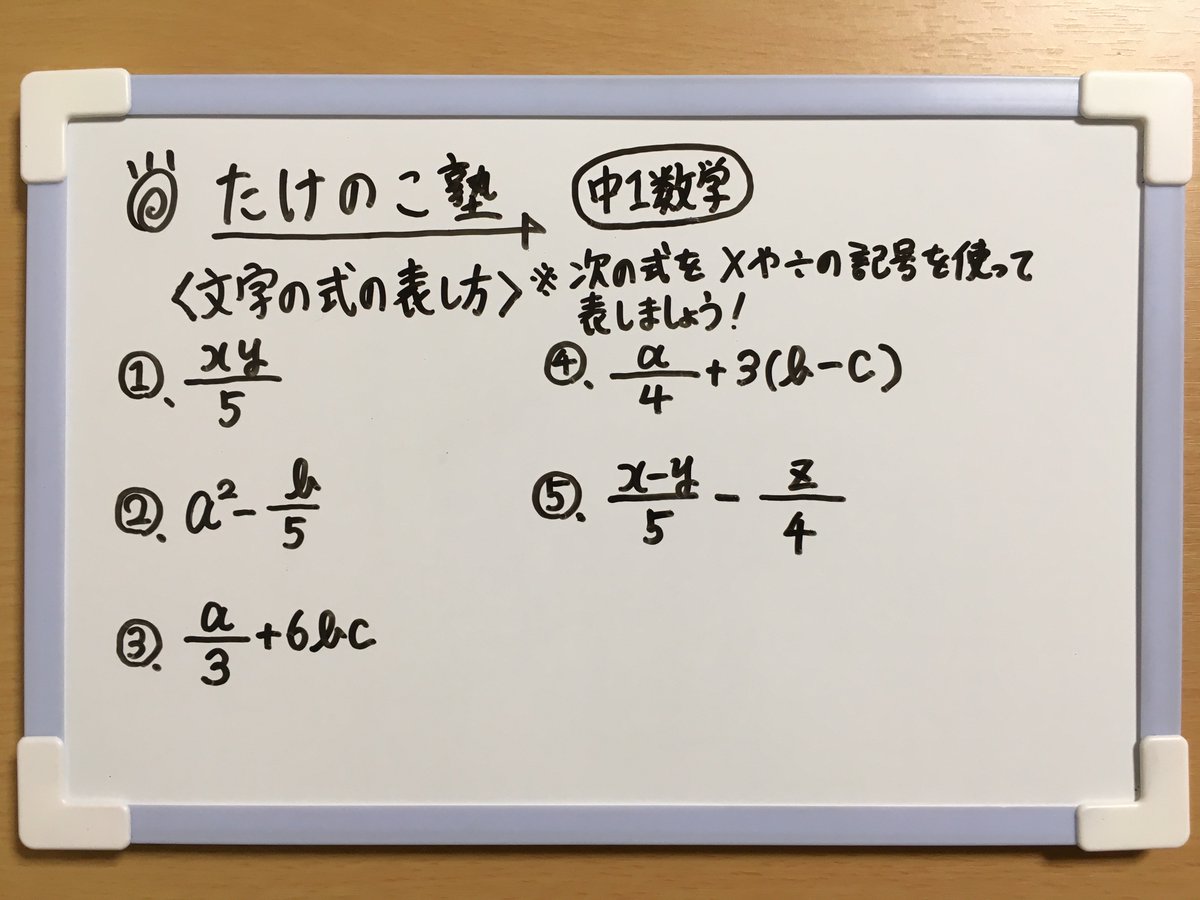 たけのこ塾
中1数学
〈文字の式の表し方〉
※次の式を×や÷の記号を使って
表しましょう!
①. xy/5
②. a²-b/5
③. a/3+6bc
④. a/4+3(b-c)
⑤. (x-y)/5-z/4